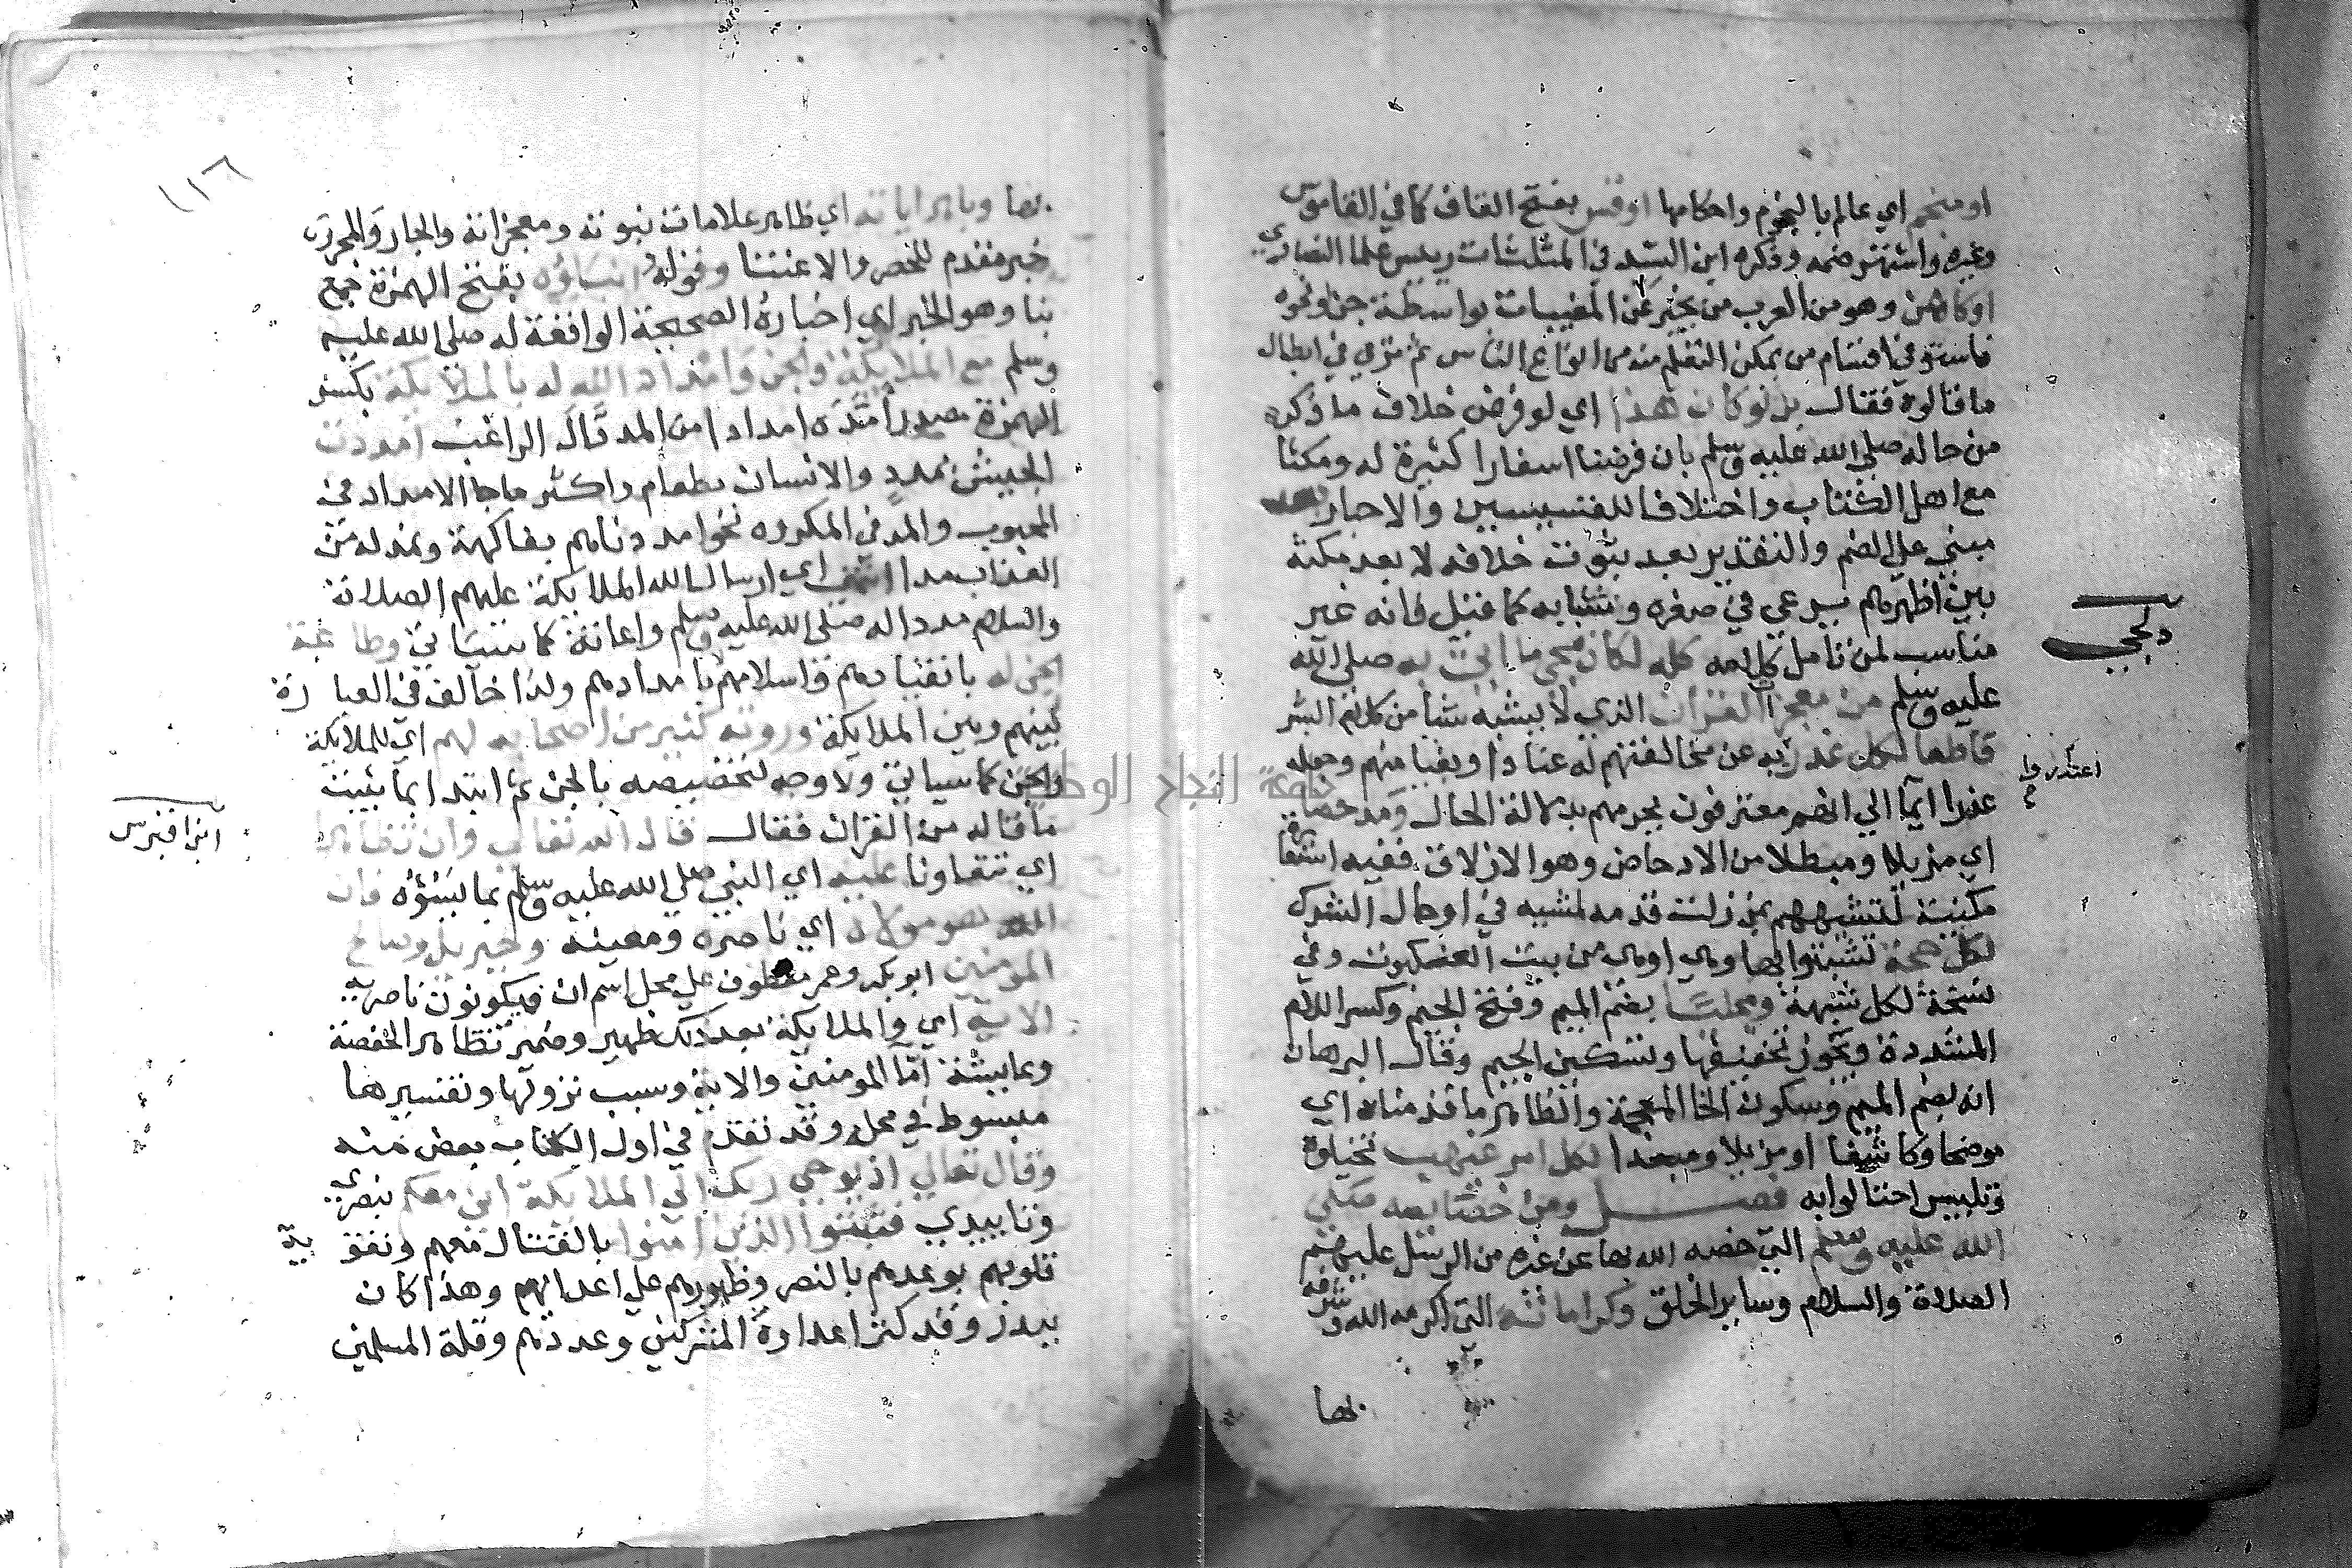 او منجم اي عالم بالنجوم واحكامها او قس بفتح القاف كما في القاموس
وغيره واشتهر ضمه وذكره ابن السيد في المثلثات رييس علما النصاري
او كاهن وهو من العرب من يخبر عن المغيبات بواسطة جن ونحوه
فاستوفي اقسام من يمكن التعلم منه من انواع الناس ثم ترقي في ابطال
ما قالوه فقال بل لو كان هذا اي لو فرض خلاف ما ذكره
من حاله صلي الله عليه وسلم بان فرضنا اسفارا كثيرة له ومكثا
مع اهل الكتاب واختلافا للقسيسين والاحبار بعد
مبني علي الضم والتقدير بعد ثبوت خلافه لا بعد مكثه
بين اظهرهم يرعي في صغره وشبابه كما قيل فانه غير
مناسب لمن تامل كلامه كله لكان مجي ما اتي به صلي الله
عليه وسلم من معجز القران الذي لا يشبه شيا من كلام البشر
قاطعا لكل عذر به عن مخالفتهم له عنادا وبغيا منهم وجعله
عذرا ايما الي انهم معترفون بجرمهم بدلالة الحال ومدحضا
اي مزيلا ومبطلا من الادحاض وهو الازلاق ففيه استعارة
مكنية لتشبيههم بمن زلت قدمه لمشيه في اوحال الشرك
لكل حجة تشبثوا بها وهي اوهي من بيت العنكبوت وفي
نسخة لكل شبهة ومجليا بضم الميم وفتح الجيم وكسر اللام
المشددة ويجوز تخفيفها وتسكين الجيم وقال البرهان
انه بضم الميم وسكون الخا المعجمة والظاهر ما قدمناه اي
موضحا وكاشفا او مزيلا ومبعدا لكل امر تخيلوه
وتلبيس احتالوا به فصل ومن خصايصه صلي
الله عليه وسلم التي خصه الله بها عن غيره من الرسل عليهم
الصلاة والسلام وساير الخلق وكراماته التي اكرمه الله وشرفه
بها
دلجي
اعتذروا
١١٦
بها وباهر اياته اي ظاهر علامات نبوته ومعجزاته والجار والمجرور
خبر مقدم للحصر والاعتنا وقوله انباؤه بفتح الهمزة جمع
نبا وهو الخبر اي اخباره الصحيحة الواقعة له صلي الله عليه
وسلم مع الملايكة والجن وامداد الله له بالملايكة بكسر
الهمزة مصدر امده امدادا من المدد قال الراغب امددت
الجيش بمدد والانسان بطعام واكثر ما جا الامداد في
المحبوب والمد في المكروه نحو امددناهم بفاكهة ونمد له من
العذاب مدا انتهي اي ارسال الله الملايكة عليهم الصلاة
والسلام مددا له صلي الله عليه وسلم واعانة كما سياتي وطاعة
الجن له بانقيادهم واسلامهم بامدادهم ولذا خالف في العبارة
بينهم وبين الملايكة ورويه كثير من اصحابه لهم اي للملايكة
والجن كما سياتي ولا وجه لتخصيصه بالجن ثم ابتدا بما يثبت
ما قاله من القران فقال قال الله تعالي وان تظاهرا
اي تتعاونا عليه اي النبي صلي الله عليه وسلم بما يسؤه فان
الله هو مولاه اي ناصره ومعينه وجبريل وصالح
المومنين ابو بكر وعمر معطوف علي محل اسم ان فيكونون ناصريه
الاية اي والملايكة بعد ذلك ظهير وضمير تظاهرا لحفصة
وعايشة اما المومنين والاية وسبب نزولها وتفسيرها
مبسوط في محله وقد تقدم في اول الكتاب بعض منه
وقال تعالي اذ يوحي ربك الي الملايكة اني معكم بنصري
وتاييدي فثبتوا الذين امنوا بالقتال معهم وتقوية
قلوبهم بوعدهم بالنصر وظهورهم علي اعدائهم وهذا كان
ببدر وقد كثر اعداده المشركين وعددهم وقلة المسلمين
جامعة النجاح الوطنية